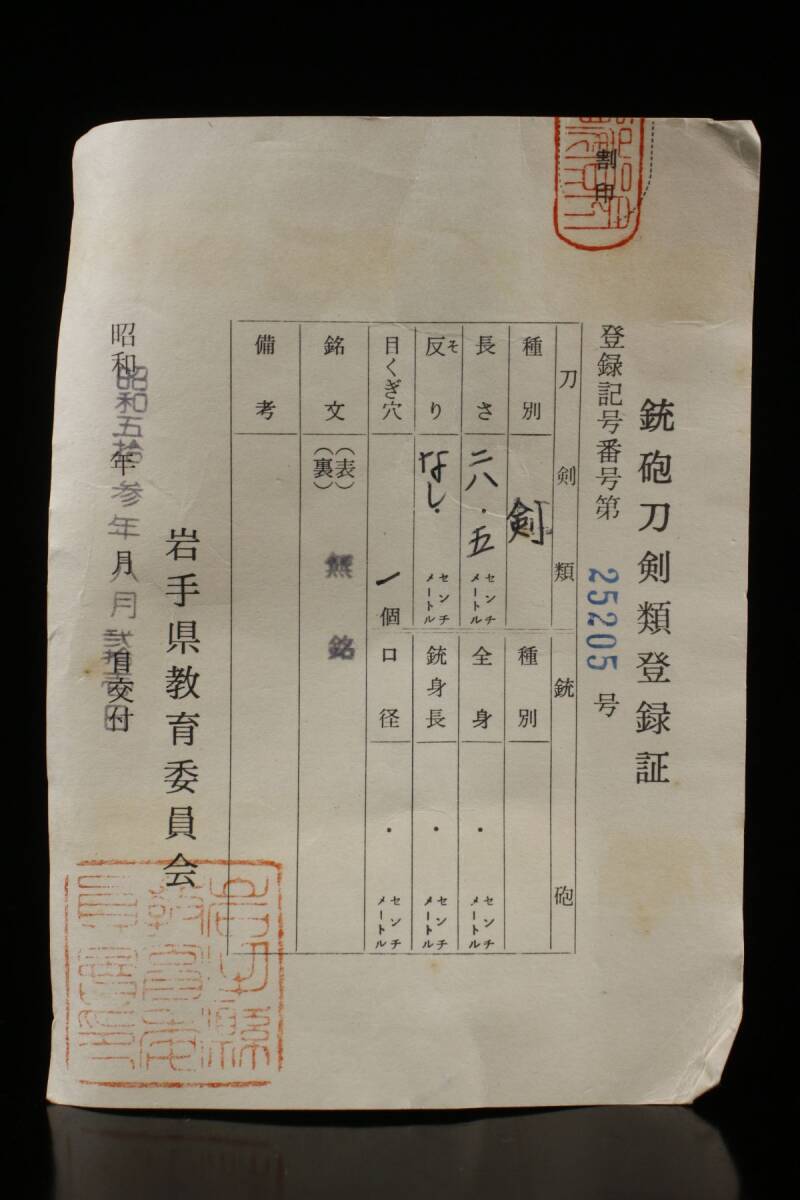 割印
銃砲刀剣類登録証
登録記号番号第 25205 号
刀剣類
銃砲
種別 剣
種別
長さ 二八・五 センチメートル
全身 ・ センチメートル
反り そ なし・ センチメートル
銃身長 ・ センチメートル
目くぎ穴 一個
口径 ・ センチメートル
銘文 (表) (裏) 無銘
備考
岩手県教育委員会
昭和 年 月 日交付
昭和五拾参年八月